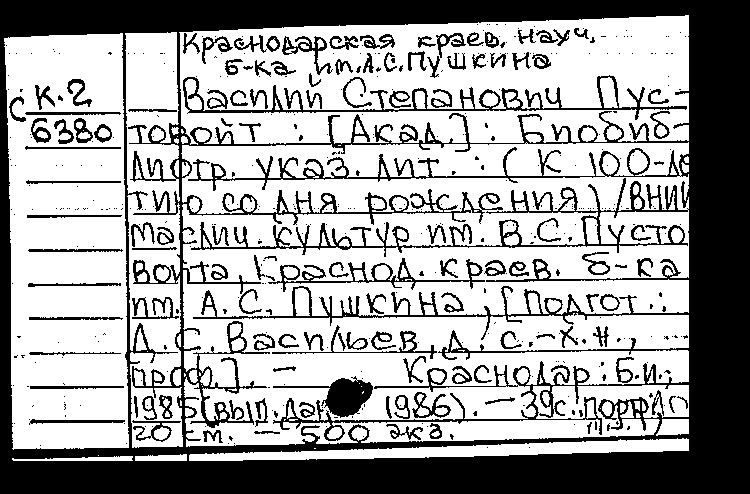 Краснодарская краев. науч.
б-ка им.А.С.Пушкина
с К.2
6380
Василий Степанович Пус-
товойт : [Акад.] : Биобиб-
лиогр. указ. лит. : ( К 100-ле
тию со дня рождения) /ВНИИ
маслич. культур им. В.С.Пусто
война, Краснод. краев. б-ка
им. А.С. Пушкина ; [Подгот.:
Д.С. Васильев, д. с.-х.н., ...
проф.]. — Краснодар : Б.и.,
1985 (вып. дан. 1986). — 39с.: портр.
20 см. — 500 экз.